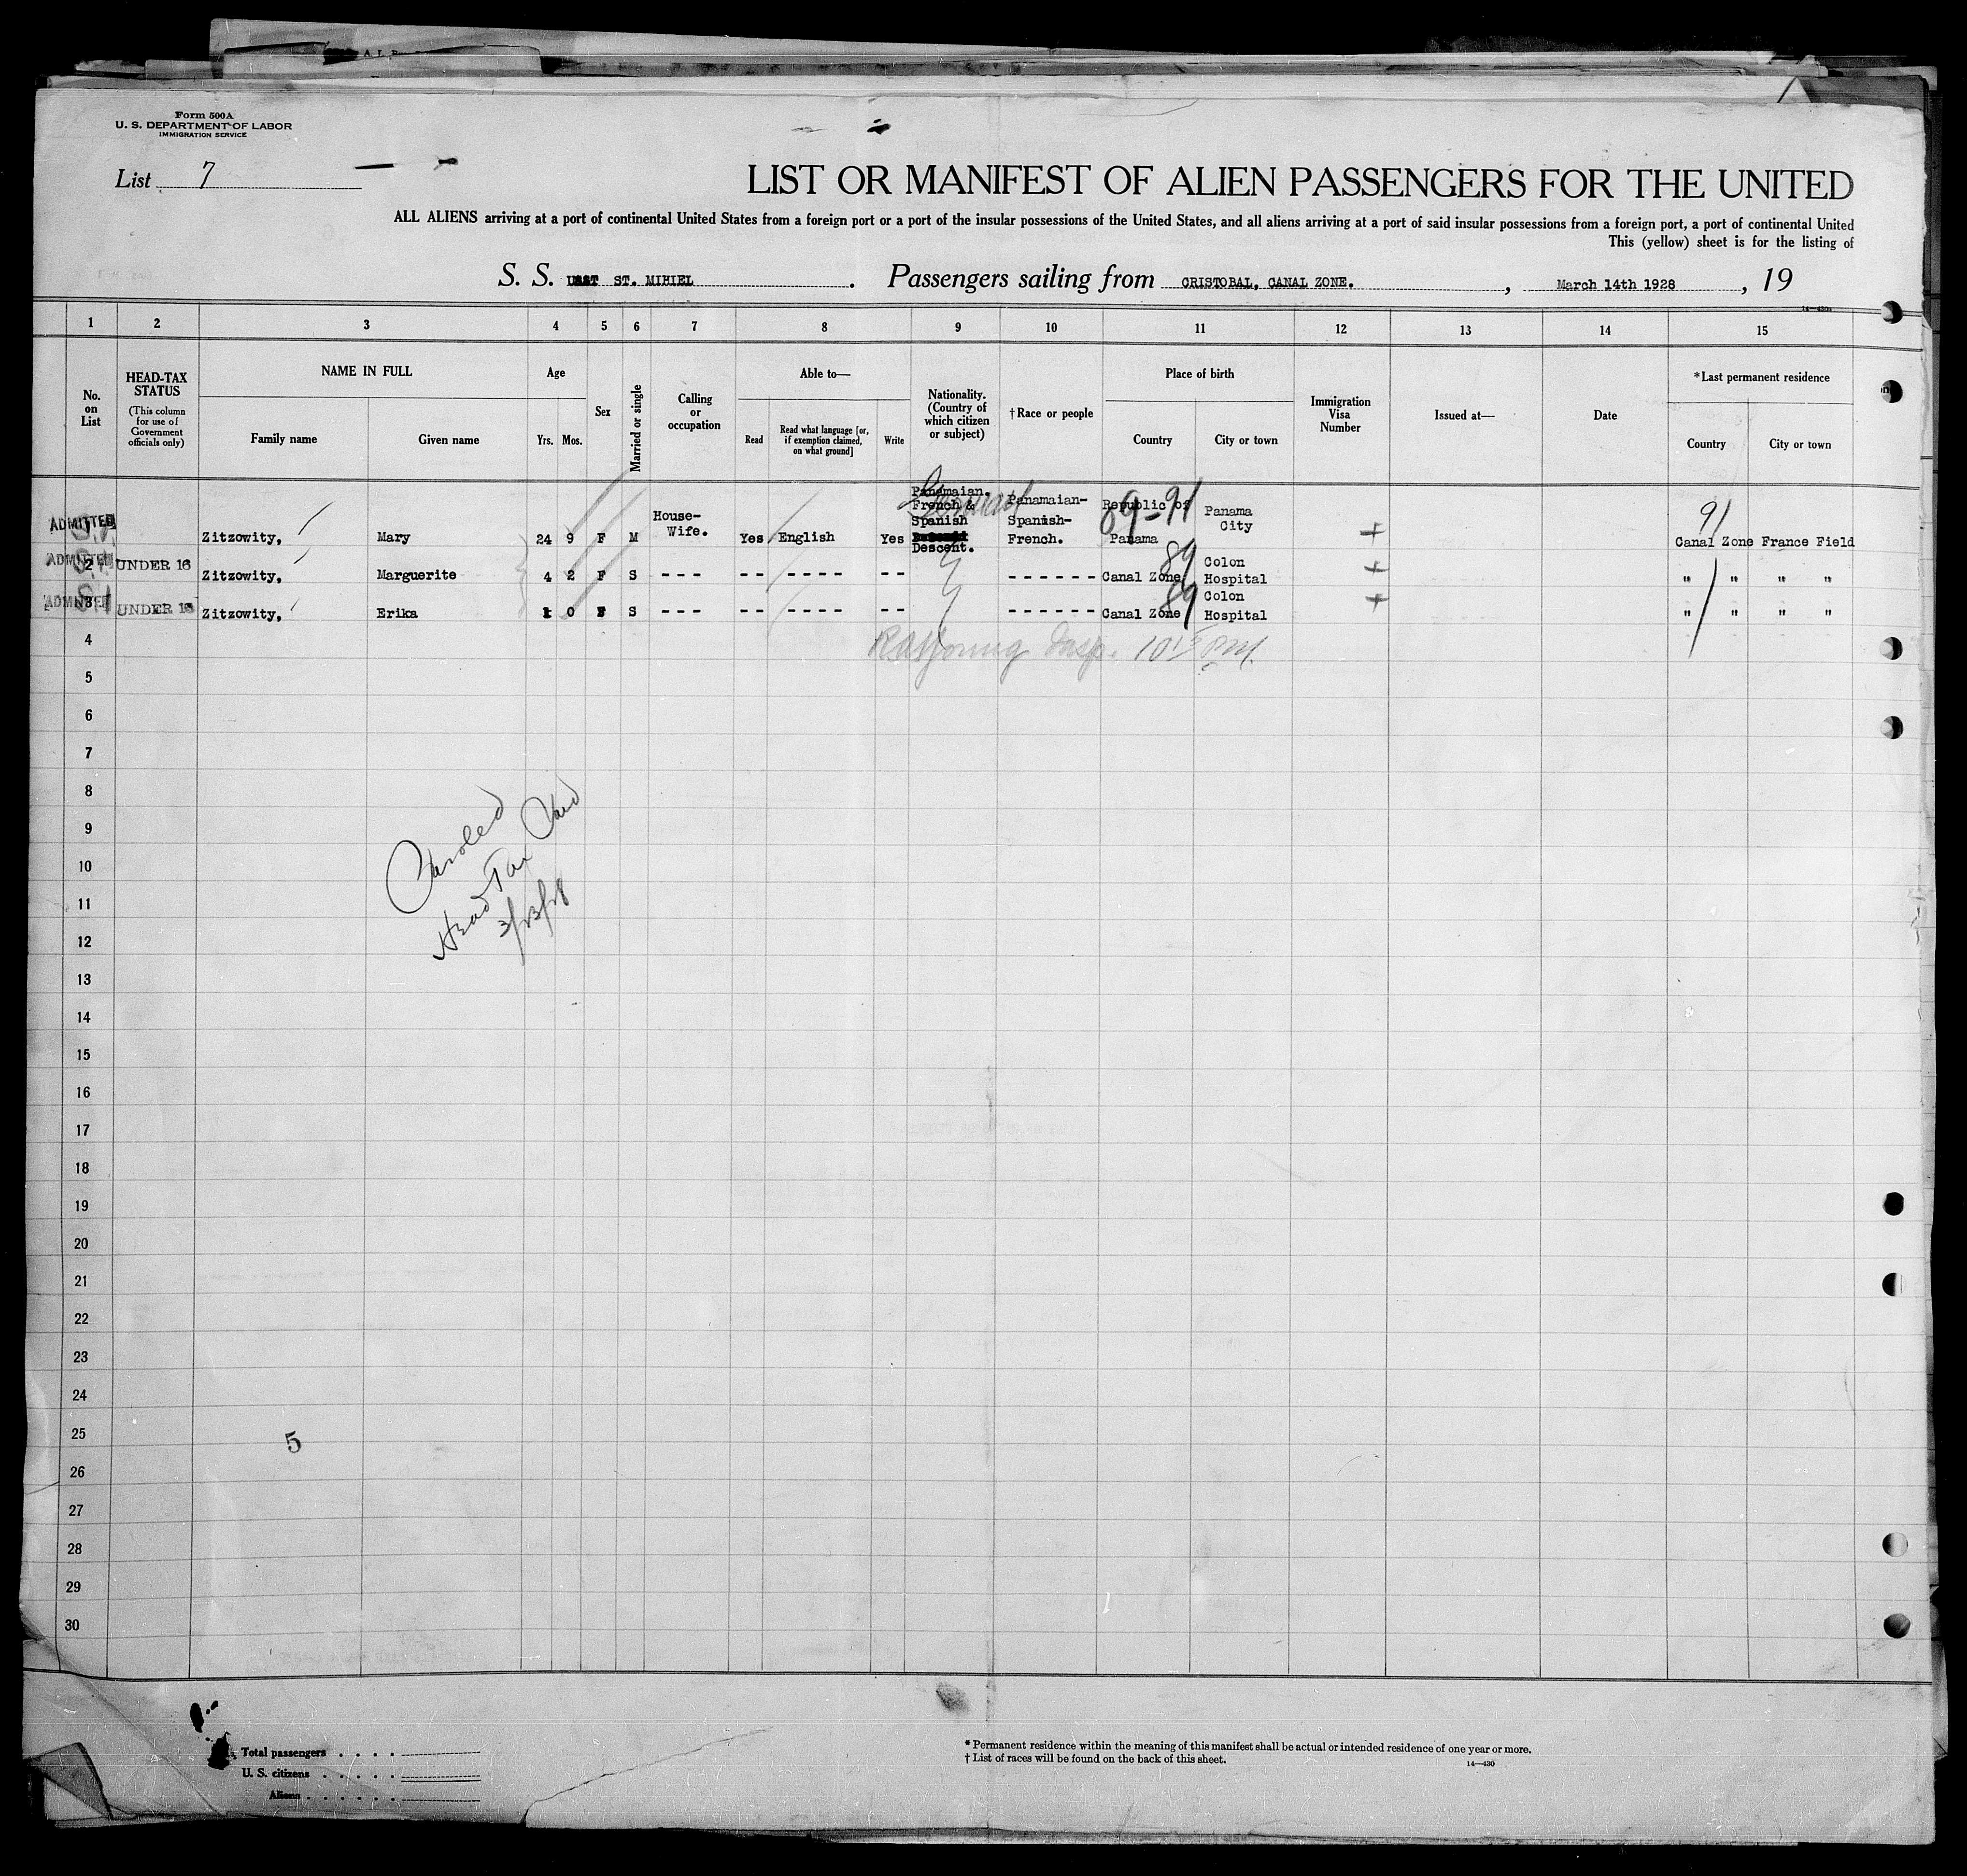 Form 500A
U. S. DEPARTMENT OF LABOR
IMMIGRATION SERVICE
List 7
LIST OR MANIFEST OF ALIEN PASSENGERS FOR THE UNITED
ALL ALIENS arriving at a port of continental United States from a foreign port or a port of the insular possessions of the United States, and all aliens arriving at a port of said insular possessions from a foreign port, a port of continental United
This (yellow) sheet is for the listing of
S. S. ST. MIHIEL . Passengers sailing from CRISTOBAL, CANAL ZONE. , March 14th 1928 , 19
14—430
1 2 3 4 5 6 7 8 9 10 11 12 13 14 15
No. on List
HEAD-TAX STATUS
(This column for use of Government officials only)
NAME IN FULL
Family name Given name
Age
Yrs. Mos.
Sex
Married or single
Calling or occupation
Able to—
Read
Read what language [or, if exemption claimed, on what ground]
Write
Nationality. (Country of which citizen or subject)
†Race or people
Place of birth
Country City or town
Immigration Visa Number
Issued at—
Date
*Last permanent residence
Country City or town
ADMITTED Zitzowity, Mary 24 9 F M House-Wife. Yes English Yes Panamaian. French & Spanish Descent. German Panamaian-Spanish-French. Republic of Panama 69-91 Panama City + 91 Canal Zone France Field
ADMITTED 2 UNDER 16 Zitzowity, Marguerite 4 2 F S --- -- ---- -- ------ Canal Zone 89 Colon Hospital + " " " "
ADMITTED 3 UNDER 16 Zitzowity, Erika 1 0 F S --- -- ---- -- ------ Canal Zone 89 Colon Hospital + " " " "
4
Insp. 10
5
6
7
8
9
10
11
12
13
14
15
16
17
18
19
20
21
22
23
24
25
26
27
28
29
30
Paroled
Head Tax Paid
3/23/28
5
Total passengers
U. S. citizens
Aliens
* Permanent residence within the meaning of this manifest shall be actual or intended residence of one year or more.
† List of races will be found on the back of this sheet.
14—430